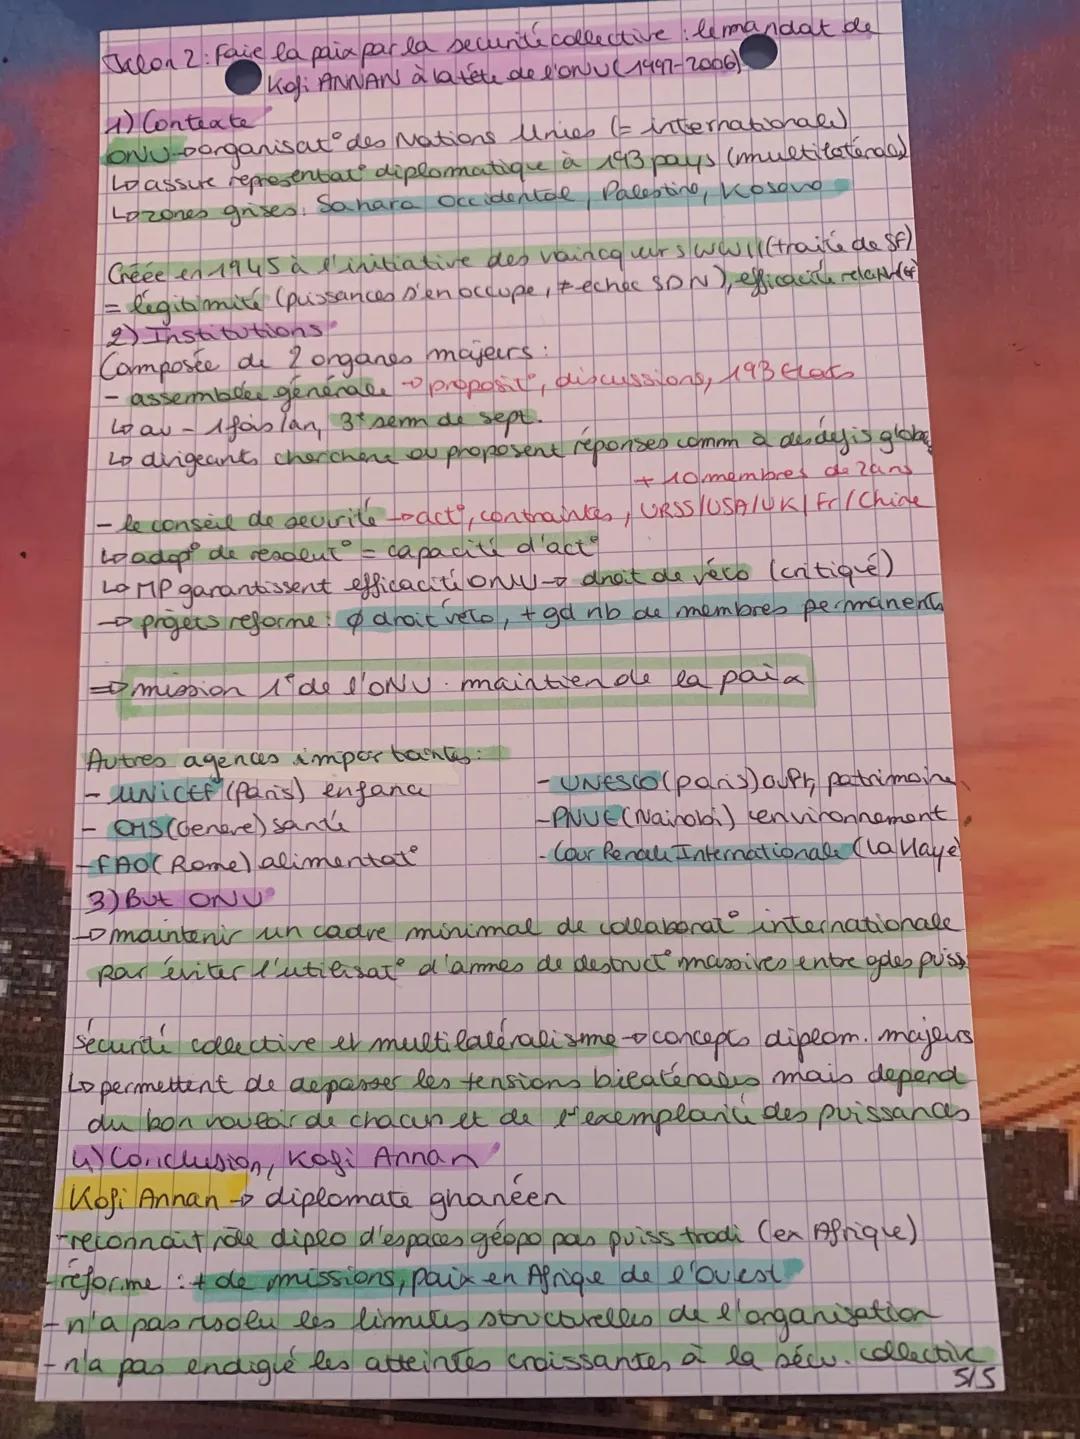 Jalon 2: Faie la paix par la securité collective : le mandat de
Kofi ANNAN à la tête de l'ONU (1997-2006)
1) Contexte
ONU → organisat° des Nations Unies (= internationale)
↳ assure representat° diplomatique à 193 pays (multilatérale)
↳ zones grises: Sahara Occidental, Palestine, Kosovo
Créée en 1945 à l'initiative des vainqueurs WWII (traité de SF)
= légitimité (puissances s'en occupe, ≠ echec SDN), efficacité relative
2) Institutions
Composée de 2 organes majeurs :
- assemblée générale → proposit°, discussions, 193 Etats
↳ au - 1 fois/an, 3e sem de sept.
↳ dirigeants cherchent ou proposent réponses comm à des défis globx
+ 10 membres de 2ans
- le conseil de sécurité → act°, contraintes, URSS/USA/UK/Fr/Chine
↳ adopt° de résolut° = capacité d'act°
↳ MP garantissent efficacité ONU → droit de véto (critiqué)
→ projets reforme: ø droit veto, + gd nb de membres permanents
⇒ mission 1e de l'ONU : maintien de la paix
Autres agences importantes:
- UNICEF (Paris) enfance
- OMS (Geneve) santé
- FAO (Rome) alimentat°
- UNESCO (paris) cult, patrimoine
- PNUE (Nairobi) environnement
- Cour Penale Internationale (La Haye)
3) But ONU
→ maintenir un cadre minimal de collaborat° internationale
par éviter l'utilisat° d'armes de destruct° massives entre gdes puiss
sécurité collective et multilatéralisme → concepts diplom. majeurs
↳ permettent de depasser les tensions bilatérales mais depend
du bon vouloir de chacun et de l'exemplarité des puissances
4) Conclusion, Kofi Annan
Kofi Annan → diplomate ghanéen
- reconnait rôle diplo d'espaces géopo pas puiss tradi (ex Afrique)
- réforme : + de missions, paix en Afrique de l'Ouest
- n'a pas résolu les limites structurelles de l'organisation
- n'a pas endigué les atteintes croissantes à la sécu. collective
5/5